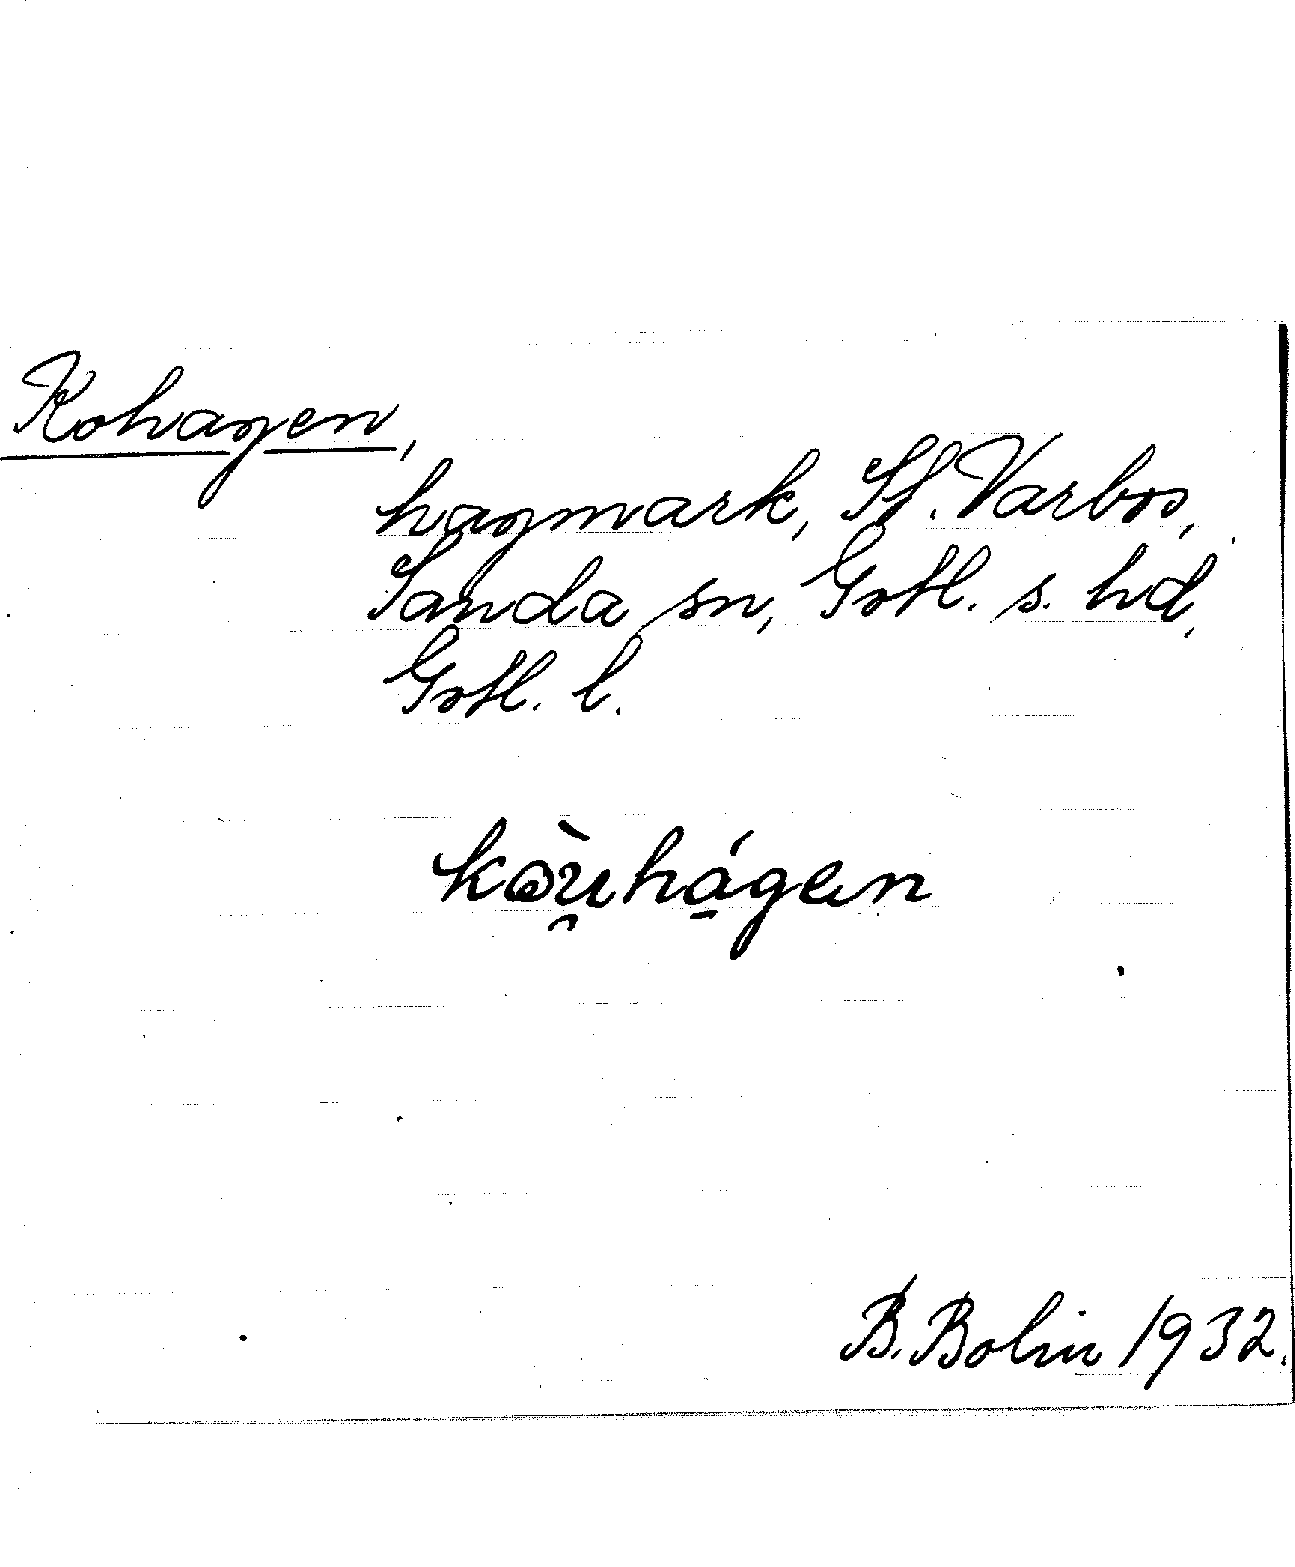 Kohagen,
hagmark, St. Varbos,
Sanda sn, Gotl. s. hd,
Gotl. l.
kòu̯há̱gen
B. Bolin 1932.